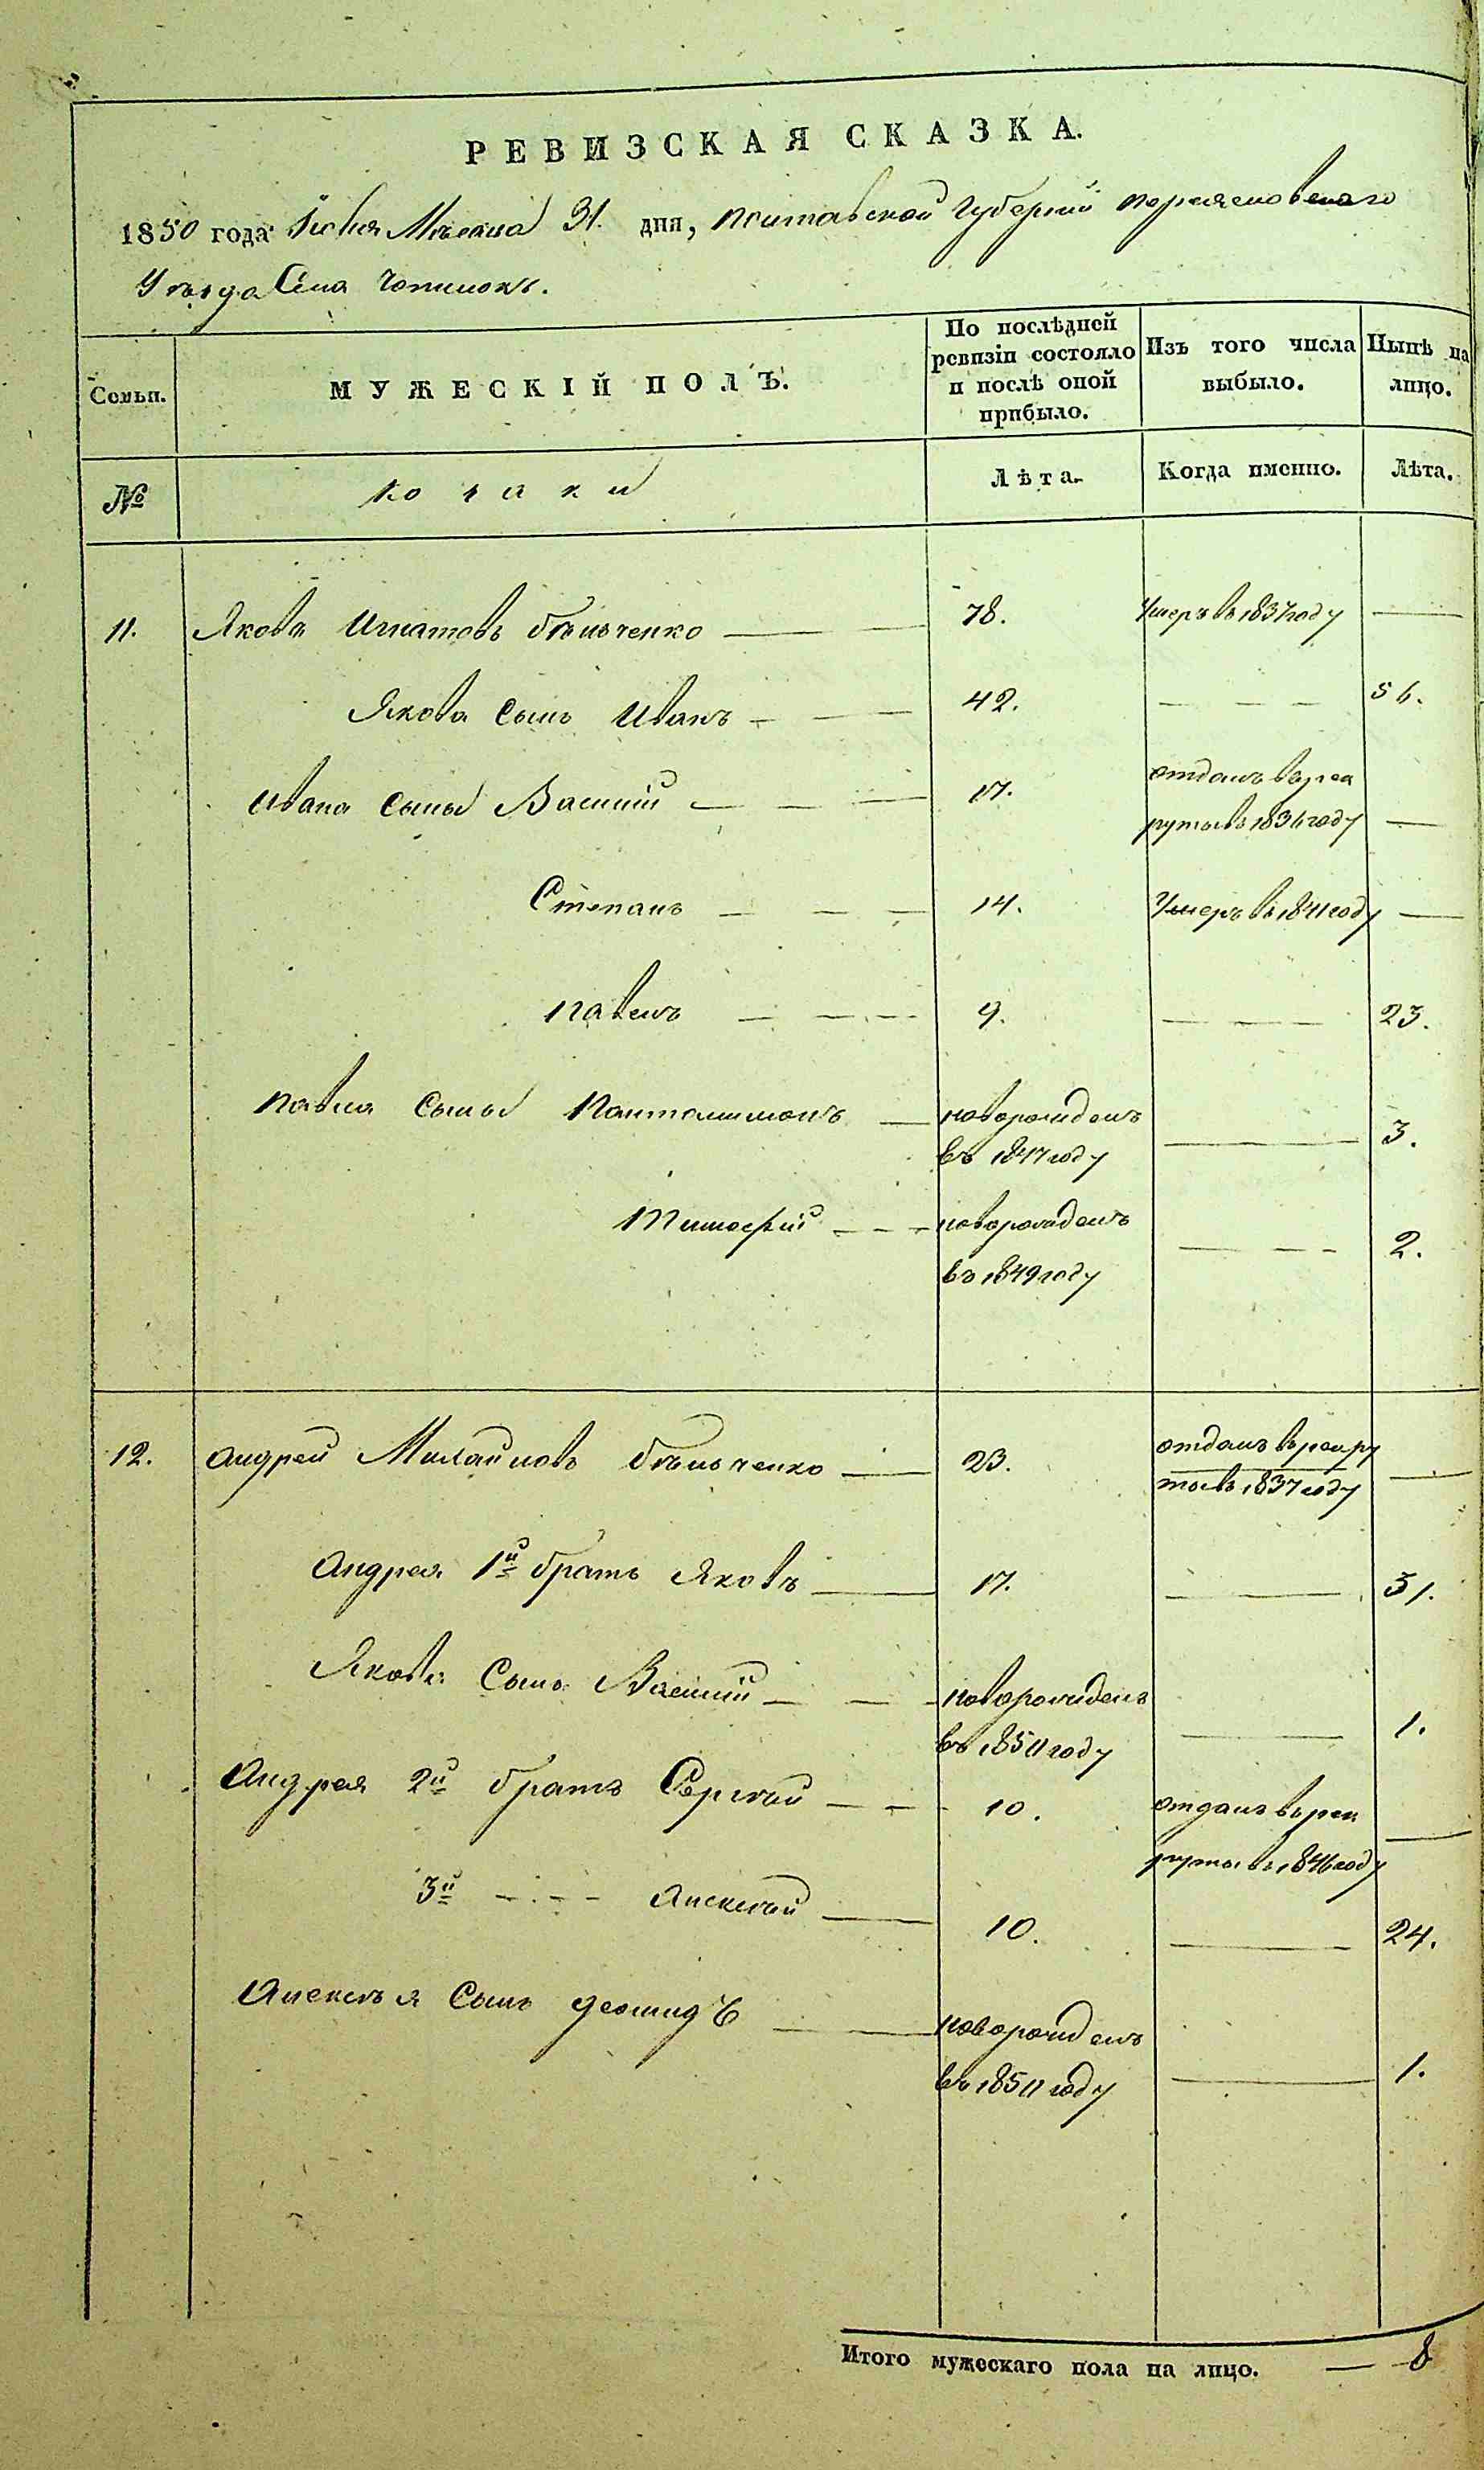 РЕВИЗСКАЯ СКАЗКА.
1850 года Июля Месяца 31. дня, Полтавской Губернии Переясловскаго
Уѣзда Села Чопилокъ.
Семьи.
МУЖЕСКІЙ ПОЛЪ.
По послѣдней ревизіи состояло и послѣ оной прибыло.
Изъ того числа выбыло.
Нынѣ на лицо.
№
козаки
Лѣта.
Когда именно.
Лѣта.
11. Яковъ Игнатовъ Бѣльченко 78. Умеръ въ 1837 году
Якова сынъ Иванъ 42. 56.
Ивана сыны Василій 17. отданъ въ рек
руты въ 1836 году
Степанъ 14. Умеръ въ 1841 году
Павелъ 9. 23.
Павла сыны Пантелимонъ новорожденъ
въ 1847 году 3.
Тимофій новорожденъ
въ 1849 году 2.
12. Андрей Михайловъ Бѣльченко 23. отданъ въ рекру
ты въ 1837 году
Андрея 1й братъ Яковъ 17. 31.
Якова Сынъ Василій новорожденъ
въ 1850 году 1.
Андрея 2й братъ Сергѣй 10. отданъ въ рек
руты въ 1846 году
3й Алексѣй 10. 24.
Алексѣя Сынъ новорожденъ
въ 1850 году 1.
Итого мужескаго пола на лицо. — 8